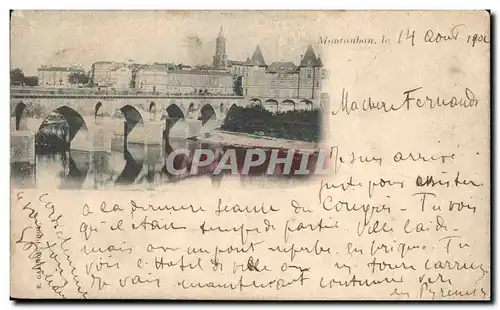 Montauban, le 14 Août 190
Ma chère Fernande
Je suis arrivé
juste pour assister
a la dernière séance du Congrès - Tu vois
qu'il était temps de partir. Ville laide
mais on a un pont superbe en brique. Tu
vois l'Hotel de ville en tours carrées
Je vais maintenant continuer vers
les Pyrénées
Cordialement
CPARAMA